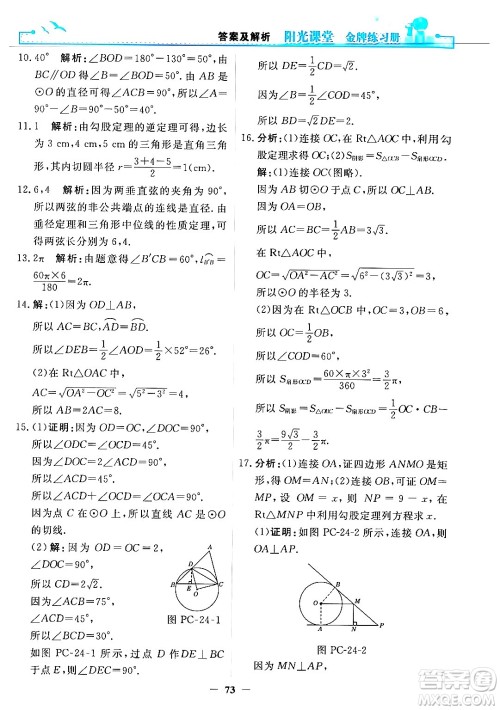 答案及解析
阳光课堂 金牌练习册
10.40° 解析:因为∠BOD=180°-130°=50°,
由BC∥OD可得∠B=∠BOD=50°.因为AB是
⊙O的直径可得∠ACB=90°,所以∠A=90°-
50°=40°.
11.1 解析:由勾股定理的逆定理可得,边长分别为
3 cm,4 cm,5 cm的三角形是直角三角形,直角三角
形,其内切圆半径r=(3+4-5)/2=1(cm).
12.6,4 解析:因为两垂直弦的夹角为90°,
所以两弦的非公共端点的连线是直径.由
垂径定理和三角形中位线的性质定理,可
得两弦长分别为6,4.
13.2π 解析:由题意得∠B′CB=60°,l=
60π×6/180=2π.
14.解:(1)因为OD⊥AB,
所以AC=BC,AD=BD.
所以∠DEB=1/2∠AOD=1/2×52°=26°.
(2)在Rt△OAC中,
AC=√(OA²-OC²)=√(5²-3²)=4,
所以AB=2AC=8.
15.(1)证明:因为OD=OC,∠DOC=90°,
所以∠ODC=∠OCD=45°.
因为∠DOC=2∠ACD=90°,
所以∠ACD=45°.
所以∠ACD+∠OCD=∠OCA=90°.
因为点C在⊙O上,所以直线AC是⊙O
的切线.
(2)解:因为OD=OC=2,
∠DOC=90°,
所以CD=2√2.
因为∠ACB=75°,
∠ACD=45°,
所以∠BCD=30°.
如图PC-24-1,过点D作DE⊥BC于点
E,则∠DEC=90°.
图PC-24-1
所以DE=1/2CD=√2.
因为∠B=45°,
所以DE=BE=√2.
所以BD=√(2+2)=2.
16.分析:(1)连接OC,在Rt△AOC中,利用勾
股定理求得OC;(2)S阴影=S△AOC-S扇形OCD.
解:(1)连接OC(图略).
因为AB切⊙O于点C,所以OC⊥AB.
因为OA=OB,
所以AC=BC=1/2AB=3√3.
在Rt△AOC中,
OC=√(OA²-AC²)=√(6²-(3√3)²)=3.
所以⊙O的半径为3.
(2)在Rt△OCB中,因为OC=1/2OB,
所以∠B=30°,∠COB=60°.
所以S扇形OCD=60×π×3²/360=3/2π.
所以S阴影=S△OCB-S扇形OCD=9√3/2-
3/2π.
17.分析:(1)连接OA,证四边形ANMO是矩
形,得OM=AN;(2)连接OB,可证OM=
MP,设OM=x,则NP=9-x,在
Rt△MNP中利用勾股定理列方程求x.
(1)证明:如图PC-24-2,连接OA,则
OA⊥AP.
图PC-24-2
因为MN⊥AP,
73